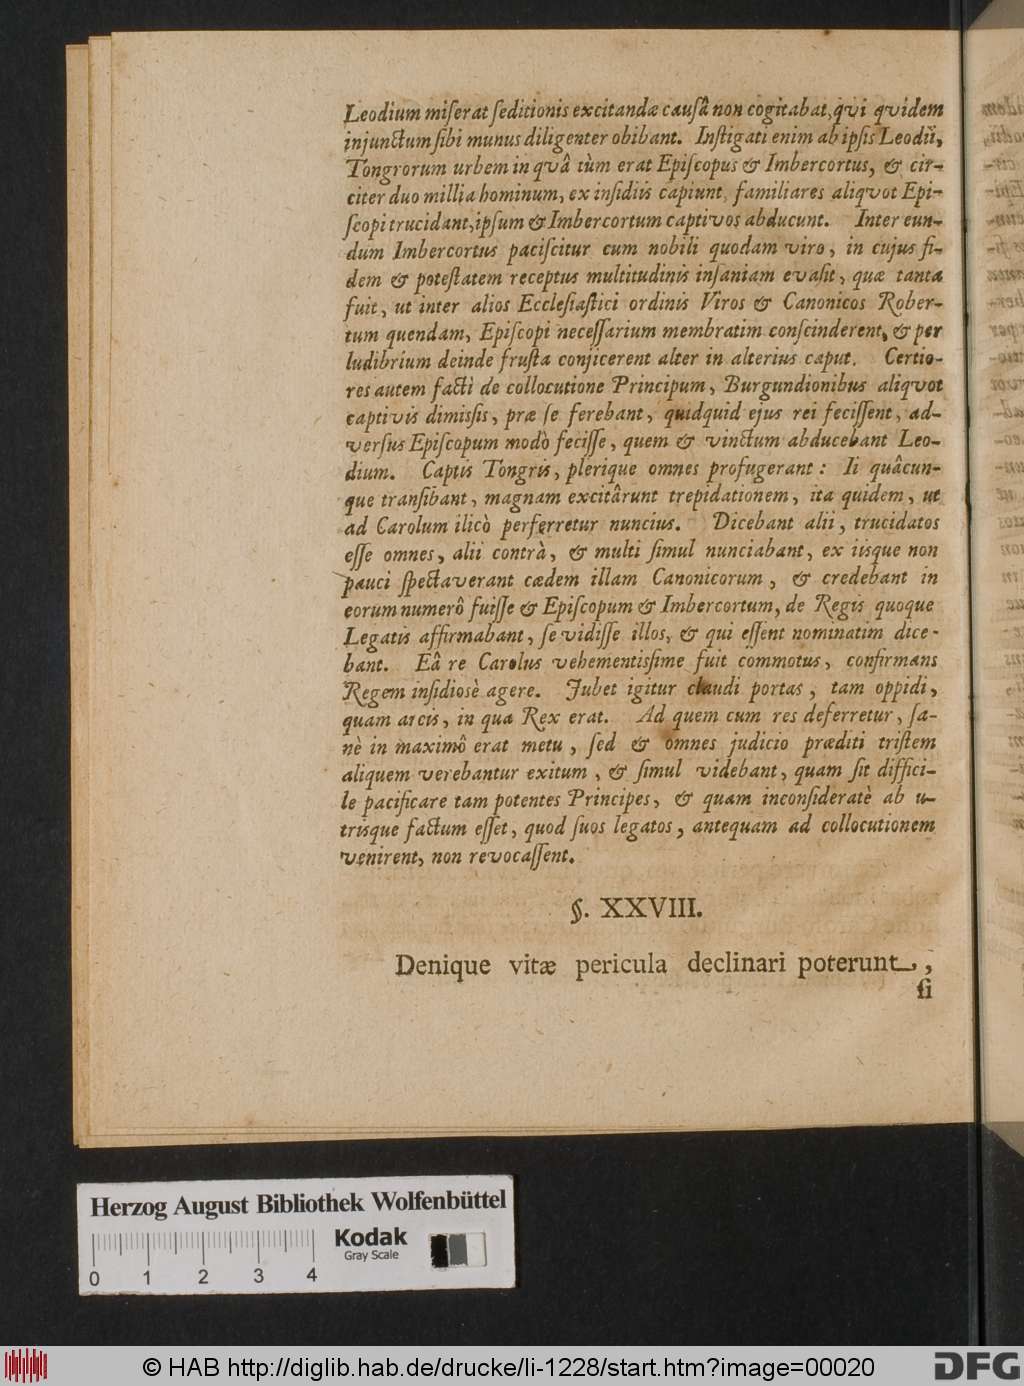 Leodium miſerat ſeditionis excitandæ cauſâ non cogitabat, qvi qvidem
injunctum ſibi munus diligenter obibant. Inſtigati enim ab ipſis Leodii,
Tongrorum urbem in qvâ tùm erat Epiſcopus & Imbercortus, & cir-
citer duo millia hominum, ex inſidiis capiunt, familiares aliqvot Epi-
ſcopi trucidant, ipſum & Imbercortum captivos abducunt. Inter eun-
dum Imbercortus paciſcitur cum nobili quodam viro, in cujus fi-
dem & poteſtatem receptus multitudinis inſaniam evaſit, quæ tanta
fuit, ut inter alios Eccleſiaſtici ordinis Viros & Canonicos Rober-
tum quendam, Epiſcopi neceſſarium membratim conſcinderent, & per
ludibrium deinde fruſta conjicerent alter in alterius caput. Certio-
res autem facti de collocutione Principum, Burgundionibus aliqvot
captivis dimiſſis, præ ſe ferebant, quidquid ejus rei feciſſent, ad-
verſus Epiſcopum modò feciſſe, quem & vinctum abducebant Leo-
dium. Captis Tongris, plerique omnes profugerant: Ii quâcun-
que tranſibant, magnam excitârunt trepidationem, ita quidem, ut
ad Carolum ilicò perferretur nuncius. Dicebant alii, trucidatos
eſſe omnes, alii contrà, & multi ſimul nunciabant, ex iisque non
pauci ſpectaverant cædem illam Canonicorum, & credebant in
eorum numerô fuiſſe & Epiſcopum & Imbercortum, de Regis quoque
Legatis affirmabant, ſe vidiſſe illos, & qui eſſent nominatim dice-
bant. Eâ re Carolus vehementiſſime fuit commotus, confirmans
Regem inſidiosè agere. Jubet igitur claudi portas, tam oppidi,
quam arcis, in qua Rex erat. Ad quem cum res deferretur, ſa-
nè in maximô erat metu, ſed & omnes judicio præditi triſtem
aliquem verebantur exitum, & ſimul videbant, quam ſit diffici-
le pacificare tam potentes Principes, & quam inconſideratè ab u-
trisque factum eſſet, quod ſuos legatos, antequam ad collocutionem
venirent, non revocaſſent.
§. XXVIII.
Denique vitæ pericula declinari poterunt,
ſi
Herzog August Bibliothek Wolfenbüttel
Kodak
Gray Scale
0 1 2 3 4
© HAB http://diglib.hab.de/drucke/li-1228/start.htm?image=00020
DFG